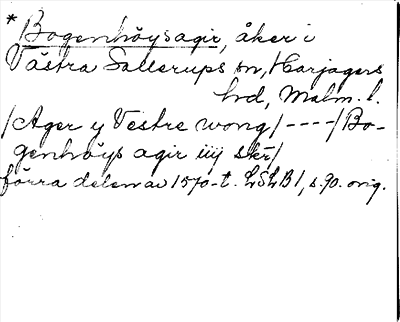 * Bogenhöysagir, åker i
Västra Sallerups sn, Harjagers
hd, Malm. l.
/Ager y Vestre wong/ ----/Bo-
genhöys agir iiij skr̄/
förra delen av 1570-t. LSLB1, s. 90. orig.